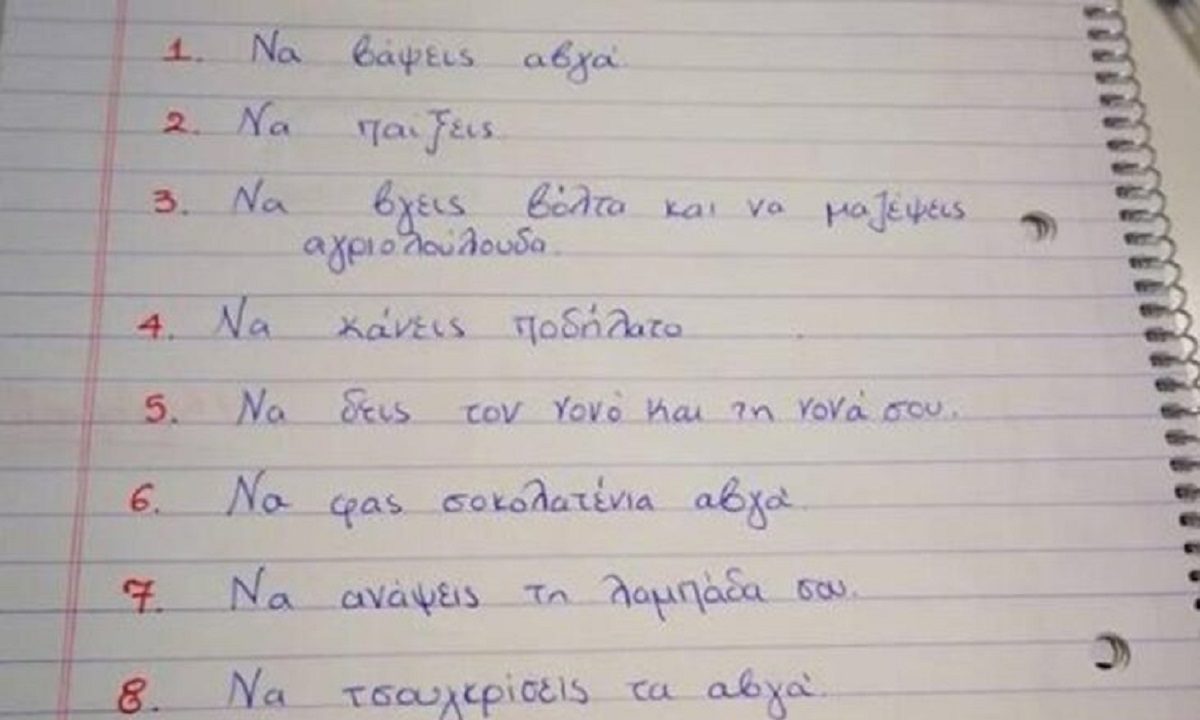 1. Να βάψεις αβγά.
2. Να παίξεις.
3. Να βγεις βόλτα και να μαζέψεις
αγριολούλουδα.
4. Να κάνεις ποδήλατο
5. Να δεις τον νονό και τη νονά σου.
6. Να φας σοκολατένια αβγά.
7. Να ανάψεις τη λαμπάδα σου.
8. Να τσουγκρίσεις τα αβγά.